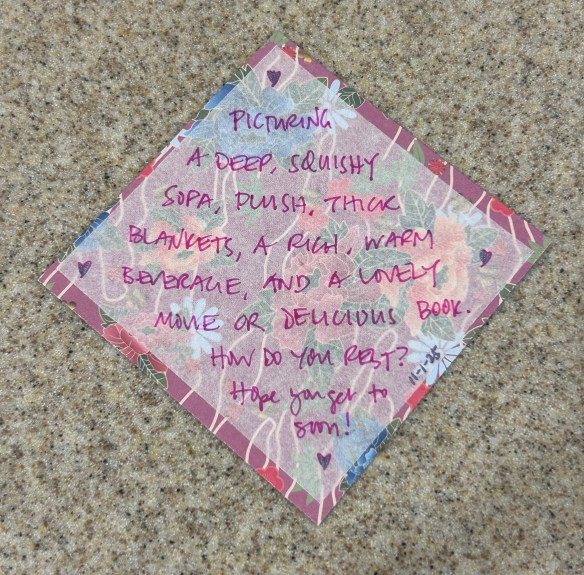 PICTURING
A DEEP, SQUISHY
SOFA, PLUSH, THICK
BLANKETS, A RICH, WARM
BEVERAGE, AND A LOVELY
MOVIE OR DELICIOUS BOOK.
HOW DO YOU REST?
11-1-25
Hope you get to
soon!